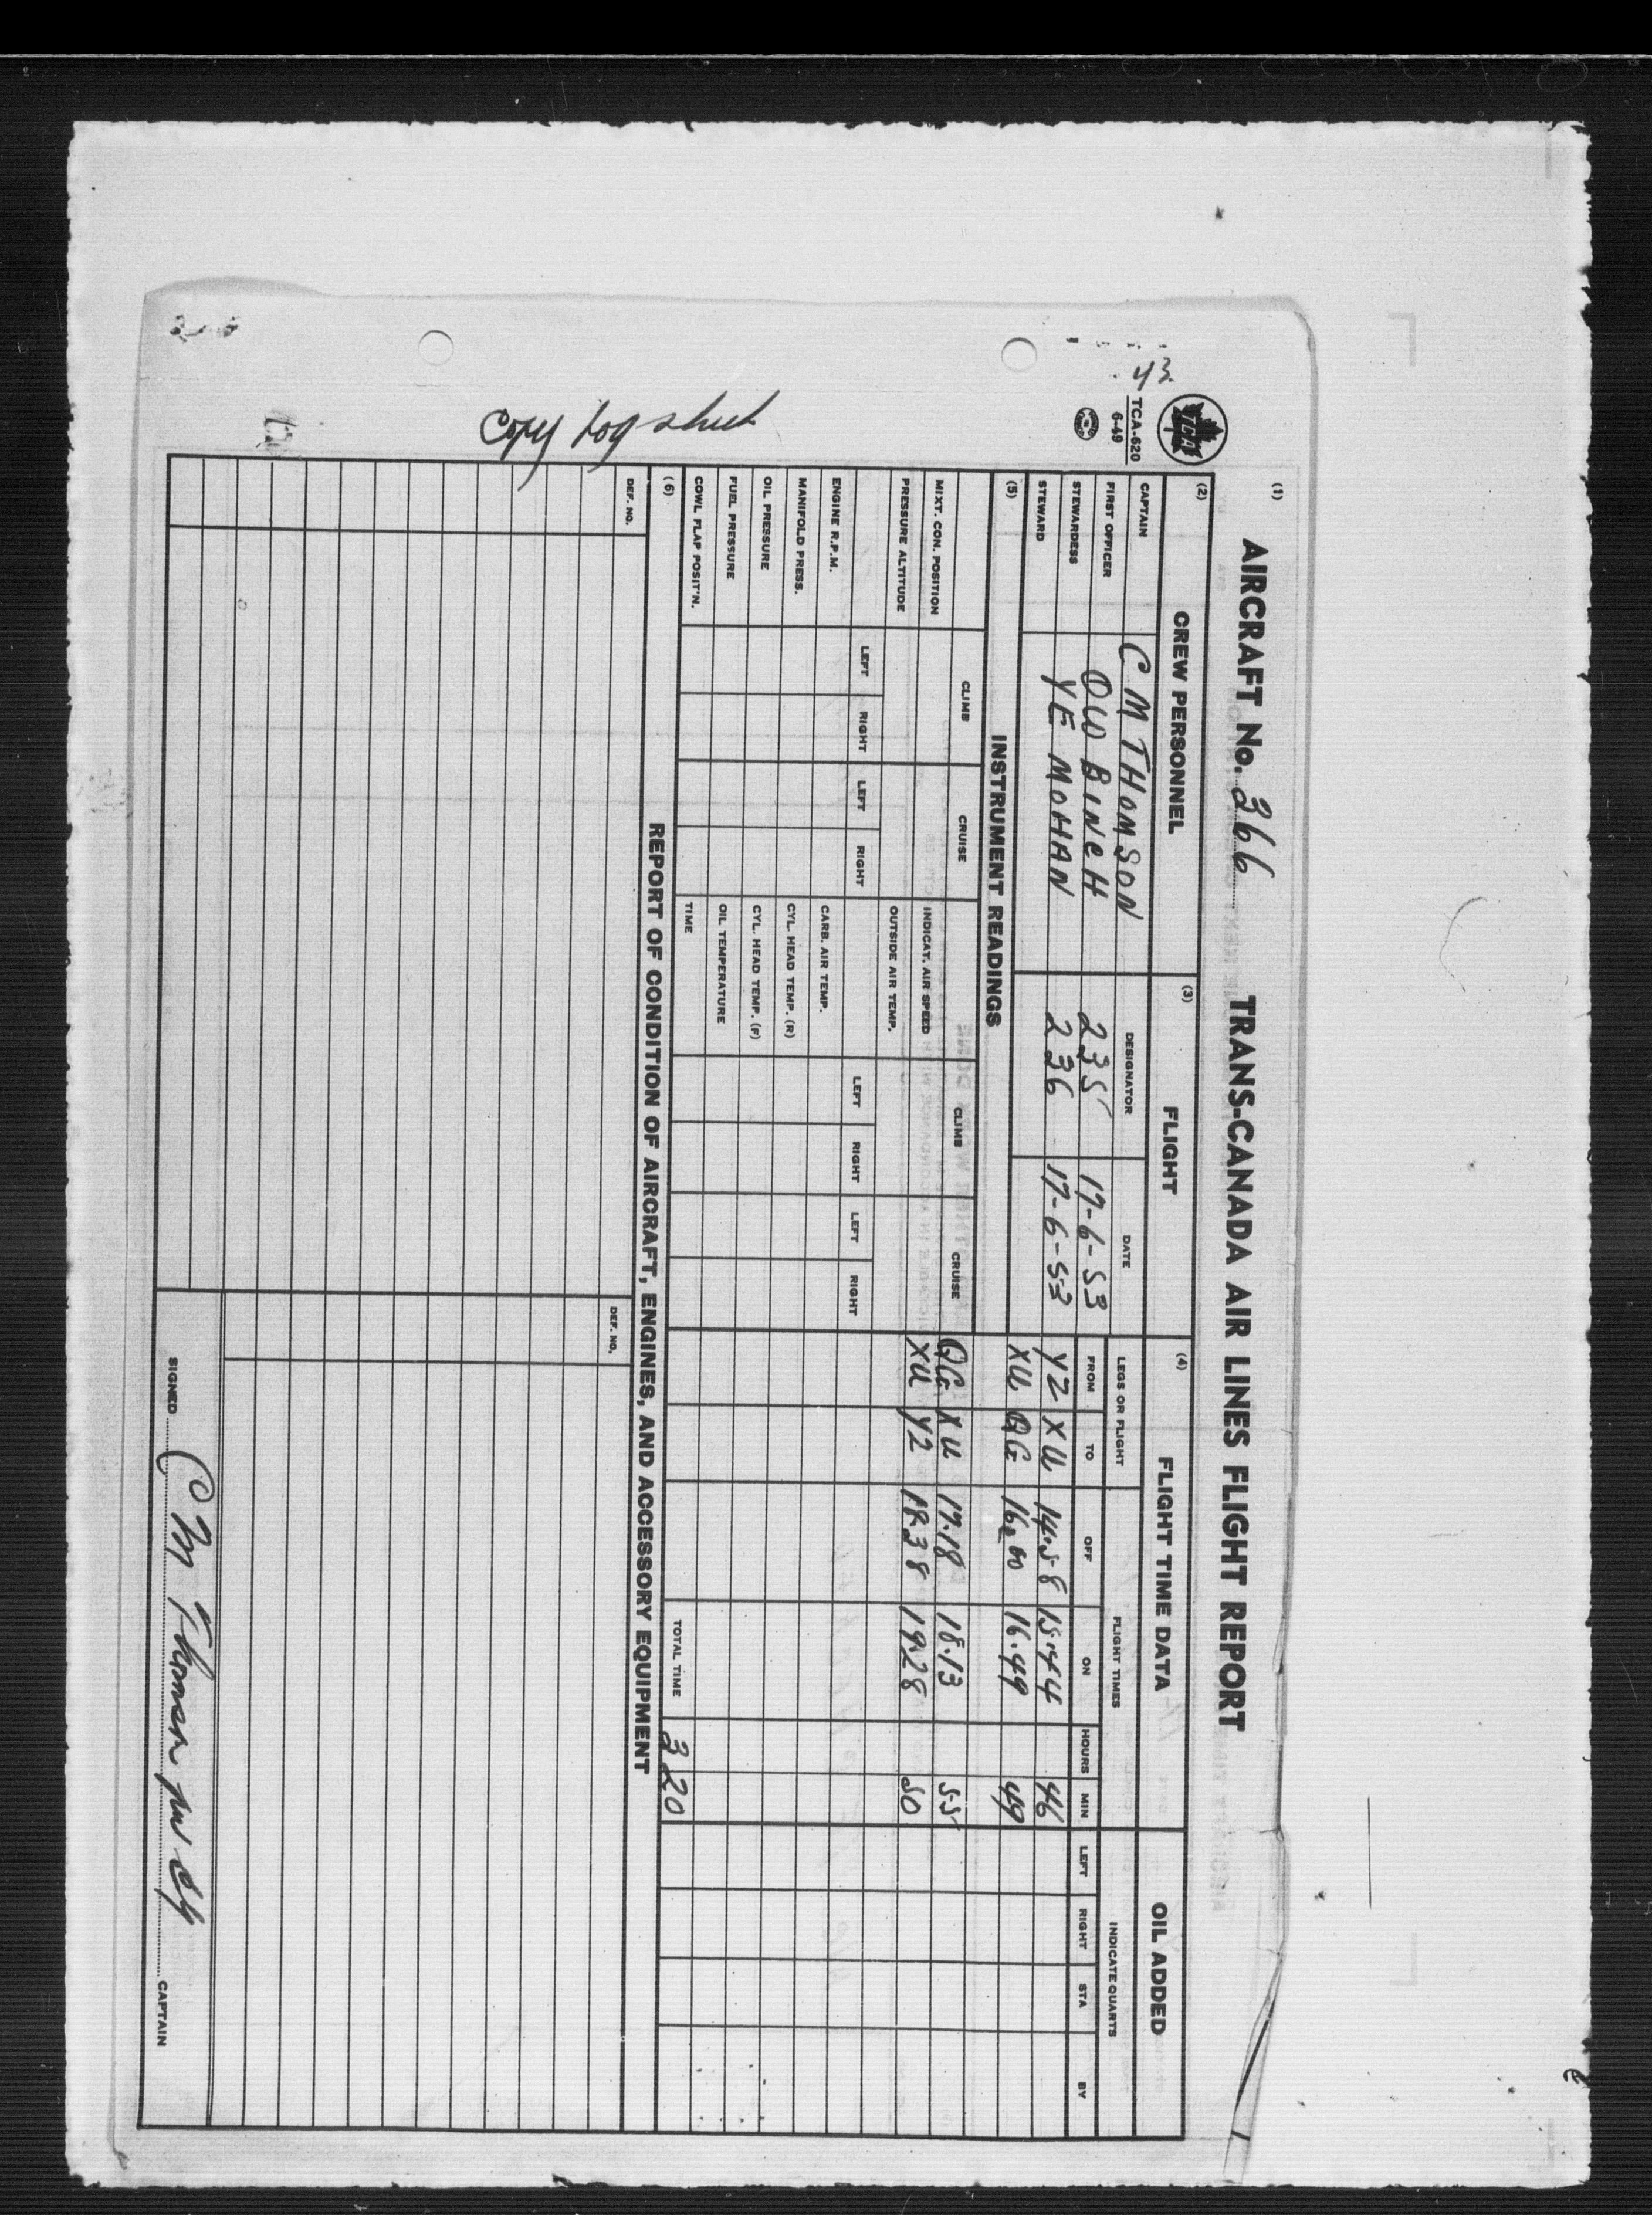 (1) AIRCRAFT No. 366 TRANS-CANADA AIR LINES FLIGHT REPORT
TCA
43
TCA-620
6-49
(2) CREW PERSONNEL (3) FLIGHT (4) FLIGHT TIME DATA OIL ADDED
CAPTAIN C M THOMSON DESIGNATOR DATE LEGS OR FLIGHT FLIGHT TIMES INDICATE QUARTS
FIRST OFFICER O W BINCH 235 17-6-53 FROM TO OFF ON HOURS MIN LEFT RIGHT STA BY
STEWARDESS Y E MOHAN 236 17-6-53 YZ XU 14.58 15.44 46
STEWARD XU QG 16.00 16.49 49
(5) INSTRUMENT READINGS
CLIMB CRUISE CLIMB CRUISE QG XU 17.18 18.13 55
MIXT. CON. POSITION INDICAT. AIR SPEED XU YZ 18.38 19.28 50
PRESSURE ALTITUDE OUTSIDE AIR TEMP.
LEFT RIGHT LEFT RIGHT LEFT RIGHT LEFT RIGHT
ENGINE R.P.M. CARB. AIR TEMP.
MANIFOLD PRESS. CYL. HEAD TEMP. (R)
OIL PRESSURE CYL. HEAD TEMP. (F)
FUEL PRESSURE OIL TEMPERATURE
COWL FLAP POSIT'N. TIME TOTAL TIME 3 20
(6) REPORT OF CONDITION OF AIRCRAFT, ENGINES, AND ACCESSORY EQUIPMENT
DEF. NO. DEF. NO.
Copy Log sheet
SIGNED C M Thomson CAPTAIN